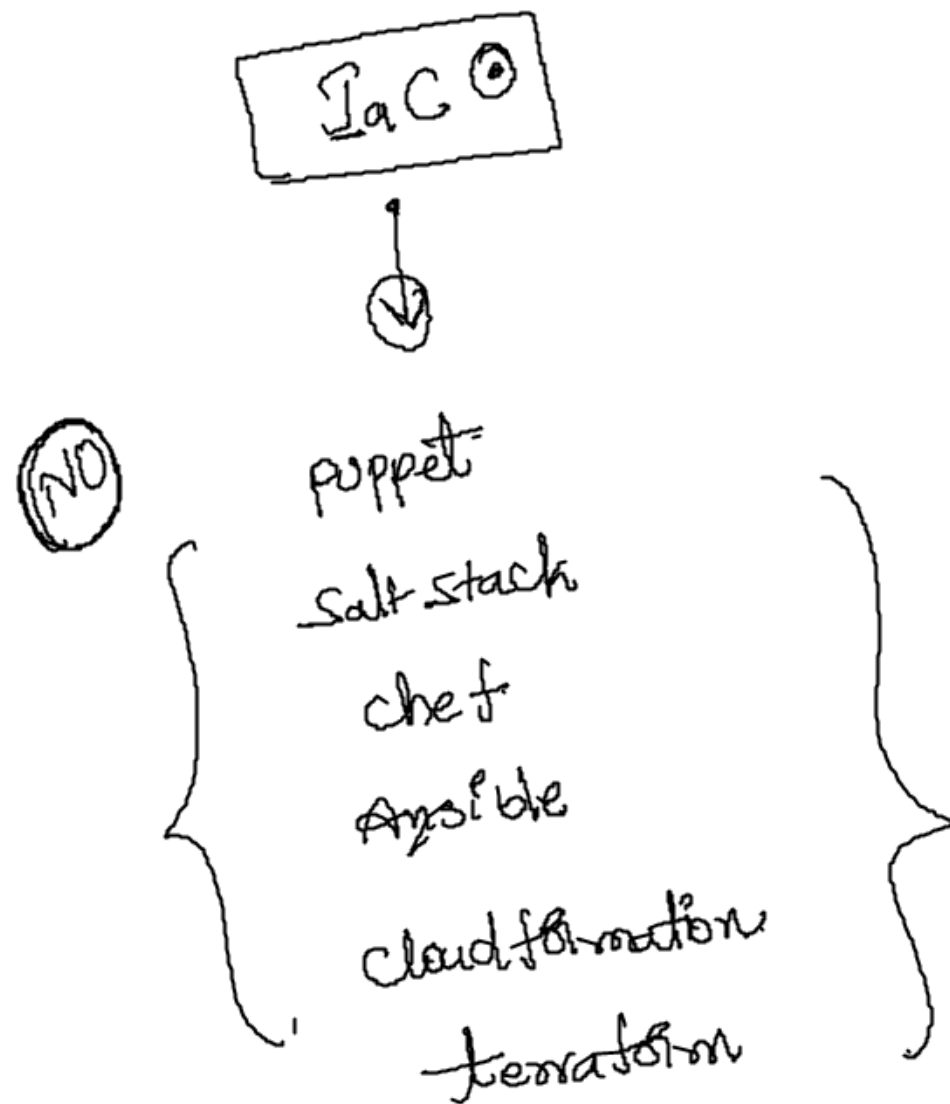 IaC
NO
puppet
Salt stack
chef
Ansible
cloudformation
terraform